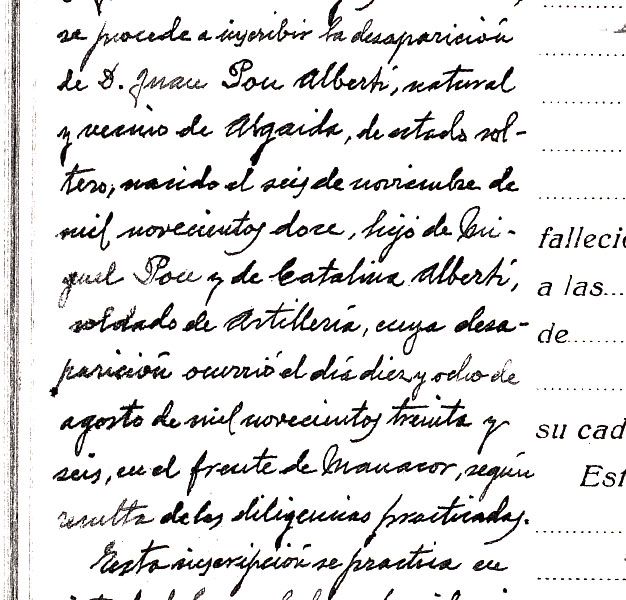 se procede a inscribir la desaparición
de D. Juan Pou Albertí, natural
y vecino de Algaida, de estado sol-
tero, nacido el seis de noviembre de
mil novecientos doce, hijo de Mi-
guel Pou y de Catalina Albertí,
soldado de Artillería, cuya desa-
parición ocurrió el día diez y ocho de
agosto de mil novecientos treinta y
seis, en el frente de Manacor, según
resulta de las diligencias practicadas.
Esta inscripción se practica en
falleció
a las
de
su cad
Est